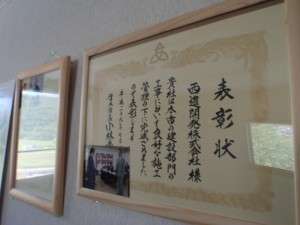 表彰状
西建開発株式会社 様
貴社は本市の建設部門の
工事において良好な施工
管理の下に完成されました
ので表彰します
平成